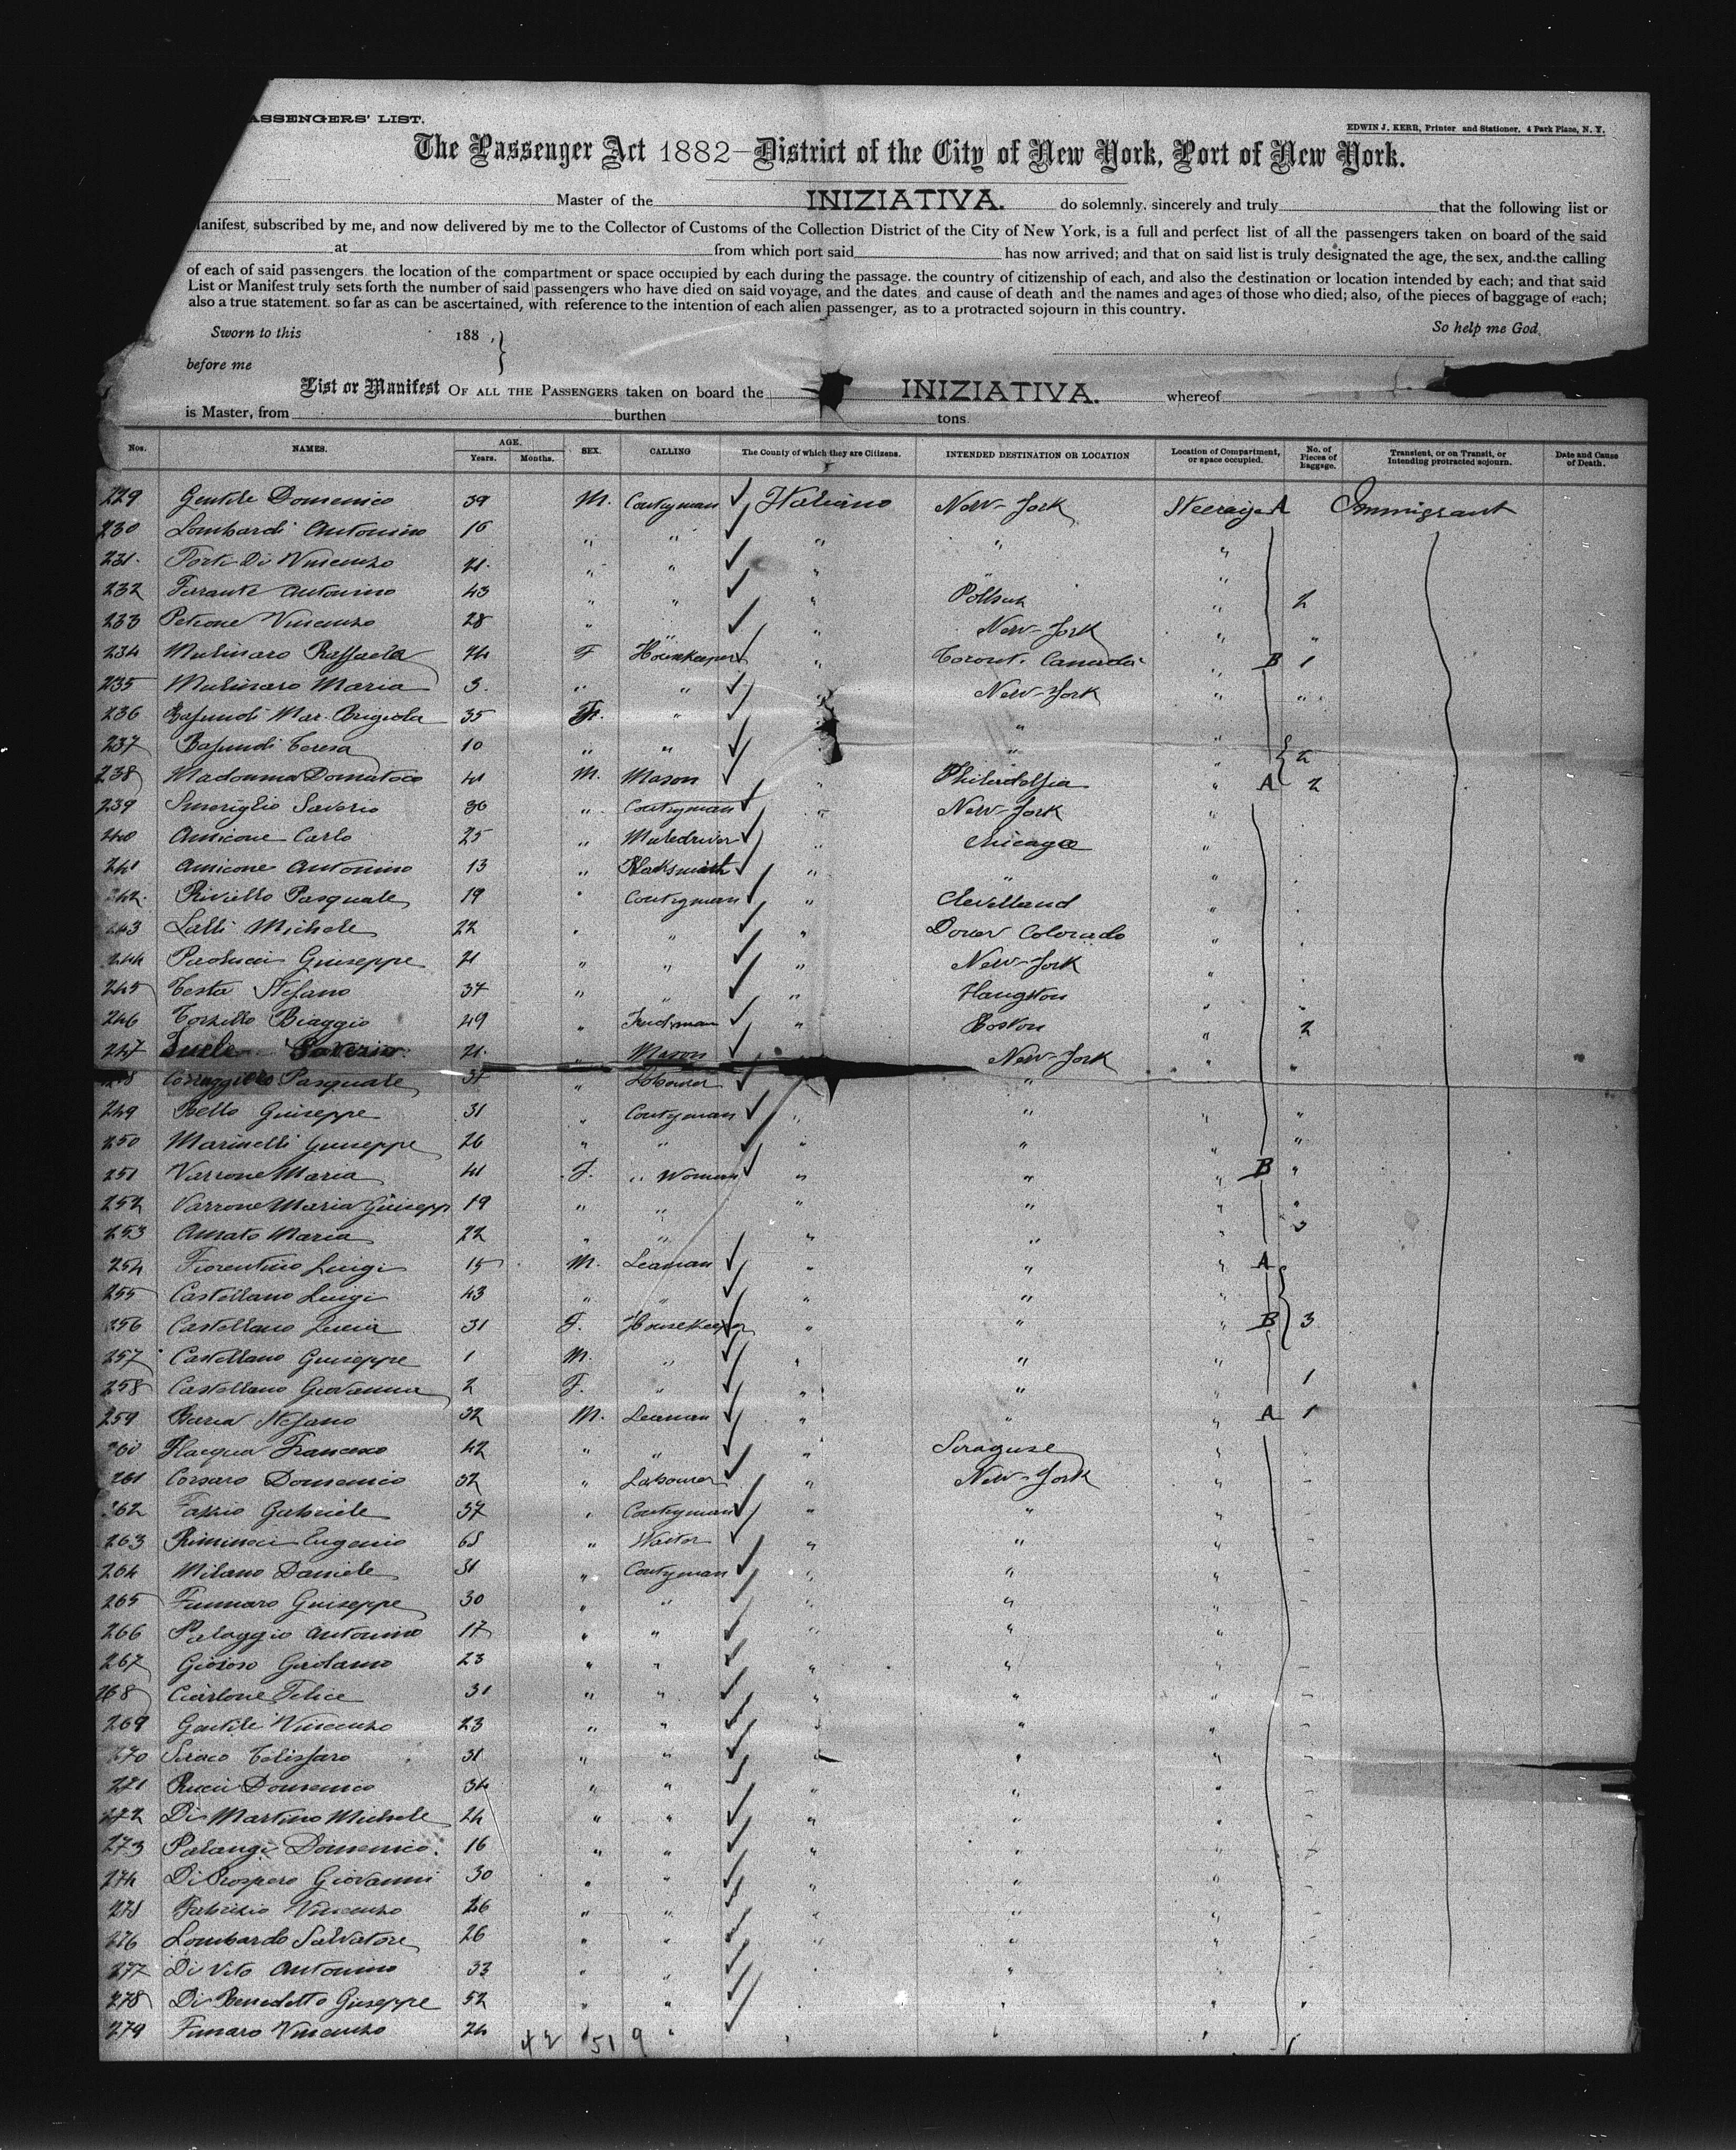 ASSENGERS' LIST.
EDWIN J. KERR, Printer and Stationer, 4 Park Place, N. Y.
The Passenger Act 1882—District of the City of New York, Port of New York.
Master of the INIZIATIVA. do solemnly, sincerely and truly that the following list or
anifest, subscribed by me, and now delivered by me to the Collector of Customs of the Collection District of the City of New York, is a full and perfect list of all the passengers taken on board of the said
at from which port said has now arrived; and that on said list is truly designated the age, the sex, and the calling
of each of said passengers, the location of the compartment or space occupied by each during the passage, the country of citizenship of each, and also the destination or location intended by each; and that said
List or Manifest truly sets forth the number of said passengers who have died on said voyage, and the dates and cause of death and the names and ages of those who died; also, of the pieces of baggage of each;
also a true statement, so far as can be ascertained, with reference to the intention of each alien passenger, as to a protracted sojourn in this country.
Sworn to this 188 , So help me God,
before me
List or Manifest OF ALL THE PASSENGERS taken on board the INIZIATIVA. whereof
is Master, from burthen tons
Nos. NAMES. AGE. Years. Months. SEX. CALLING The County of which they are Citizens. INTENDED DESTINATION OR LOCATION Location of Compartment, or space occupied. No. of Pieces of Baggage. Transient, or on Transit, or Intending protracted sojourn. Date and Cause of Death.
229 Gentile Domenico 39 M. Contryman Italiano New-York Steerage A Immigrant
230 Lombardi Antonino 16 " " " " "
231 Forte Di Vincenzo 21 " " " " "
232 Ferrante Antonino 43 " " " " 2
233 Petrone Vincenzo 28 " " " New-York " "
234 Mulinaro Raffaela 24 F Housekeeper " Toront. Canada " B 1
235 Mulinaro Maria 3 " " " New-York " "
236 Mar. 35 F. " " "
237 Teresa 10 " " " " 2
238 Madonna Donato 41 M. Mason " Philadelfia " A 2
239 Smeriglio Saverio 36 " Contryman " New-York "
240 Amicone Carlo 25 " Muledriver " Chicago "
241 Amicone Antonino 13 " Blaksmith " " "
242 Riviello Pasquale 19 " Contryman " Clevelland "
243 Lalli Michele 22 " " " Dover Colorado "
244 Paolucci Giuseppe 21 " " " New-York "
245 Testa Stefano 37 " " " "
246 Torzillo Biaggio 49 " " Boston " 2
247 Saverio 21 " Mason New-York " "
248 Pasquale 31 " Labourer "
249 Bello Giuseppe 31 " Contryman " " " "
250 Marinelli Giuseppe 26 " " " " " "
251 Varrone Maria 41 F. " Woman " " " B "
252 Varrone Maria Giusepp 19 " " " " " "
253 Amato Maria 22 " " " " " 3
254 Fiorentino Luigi 15 M. Seaman " " " A
255 Castellano Luigi 43 " " " " "
256 Castellano Lucia 31 F. Housekeeper " " " B 3
257 Castellano Giuseppe 1 M. " " " "
258 Castellano Giovanna 2 F. " " " " 1
259 Stefano 32 M. Seaman " " " A 1
260 Francesco 42 " " " Siraguse "
261 Corsaro Domenico 32 " Labourer " New-York "
262 Fazzio Gabriele 37 " Contryman " " "
263 Riminoci Eugenio 65 " " " "
264 Milano Daniele 31 " Contryman " " "
265 Fumaro Giuseppe 30 " " " " "
266 Palaggio Antonino 17 " " " " "
267 Gioioso Girolamo 23 " " " " "
268 Ciarlone Felice 31 " " " "
269 Gentile Vincenzo 23 " " " " "
270 Telisfaro 31 " " " "
271 Ricci Domenico 34 " " " " "
272 Di Martino Michele 24 " " " " "
273 Palangi Domenico 16 " " " " "
274 Di Prospero Giovanni 30 " " " " "
275 Fabrizio Vincenzo 26 " " " " "
276 Lombardo Salvatore 26 " " " " "
277 Di Vito Antonino 33 " " " "
278 Di Benedetto Giuseppe 52 " " " " "
279 Fumaro Vincenzo 24 " " " "
42 51 9